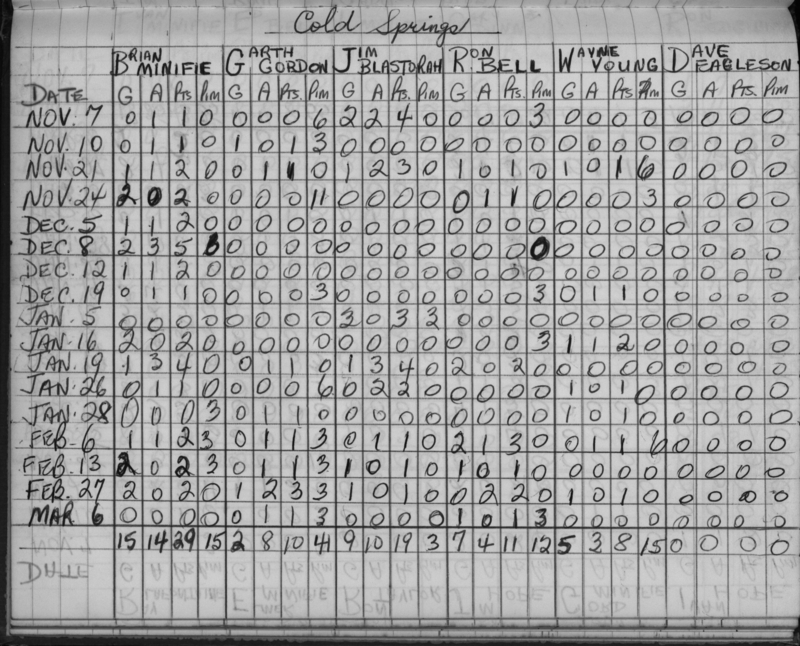 Cold Springs
BRIAN MINIFIE GARTH GORDON JIM BLASTORAH RON BELL WAYNE YOUNG DAVE EAGLESON
DATE G A Pts Pim G A Pts. Pim G A Pts. Pim G A Pts. Pim G A Pts Pim G A Pts. Pim
NOV. 7 0 1 1 0 0 0 0 6 2 2 4 0 0 0 0 3 0 0 0 0 0 0 0 0
NOV. 10 0 1 1 0 1 0 1 3 0 0 0 0 0 0 0 0 0 0 0 0 0 0 0 0
NOV. 21 1 1 2 0 0 1 1 0 1 2 3 0 1 0 1 0 1 0 1 6 0 0 0 0
NOV. 24 2 0 2 0 0 0 0 11 0 0 0 0 0 1 1 0 0 0 0 3 0 0 0 0
DEC. 5 1 1 2 0 0 0 0 0 0 0 0 0 0 0 0 0 0 0 0 0 0 0 0 0
DEC. 8 2 3 5 6 0 0 0 0 0 0 0 0 0 0 0 0 0 0 0 0 0 0 0 0
DEC. 12 1 1 2 0 0 0 0 0 0 0 0 0 0 0 0 0 0 0 0 0 0 0 0 0
DEC. 19 0 1 1 0 0 0 0 3 0 0 0 0 0 0 0 3 0 1 1 0 0 0 0 0
JAN. 5 0 0 0 0 0 0 0 0 3 0 3 3 0 0 0 0 0 0 0 0 0 0 0 0
JAN. 16 2 0 2 0 0 0 0 0 0 0 0 0 0 0 0 3 1 1 2 0 0 0 0 0
JAN. 19 1 3 4 0 0 1 1 0 1 3 4 0 2 0 2 0 0 0 0 0 0 0 0 0
JAN. 26 0 1 1 0 0 0 0 6 0 2 2 0 0 0 0 0 1 0 1 0 0 0 0 0
JAN. 28 0 0 0 3 0 1 1 0 0 0 0 0 0 0 0 0 1 0 1 0 0 0 0 0
FEB. 6 1 1 2 3 0 1 1 3 0 1 1 0 2 1 3 0 0 1 1 6 0 0 0 0
FEB. 13 2 0 2 3 0 1 1 3 1 0 1 0 1 0 1 0 0 0 0 0 0 0 0 0
FEB. 27 2 0 2 0 1 2 3 3 1 0 1 0 0 2 2 0 1 0 1 0 0 0 0 0
MAR 6 0 0 0 0 0 1 1 3 0 0 0 0 1 0 1 3 0 0 0 0 0 0 0 0
15 14 29 15 2 8 10 41 9 10 19 3 7 4 11 12 5 3 8 15 0 0 0 0